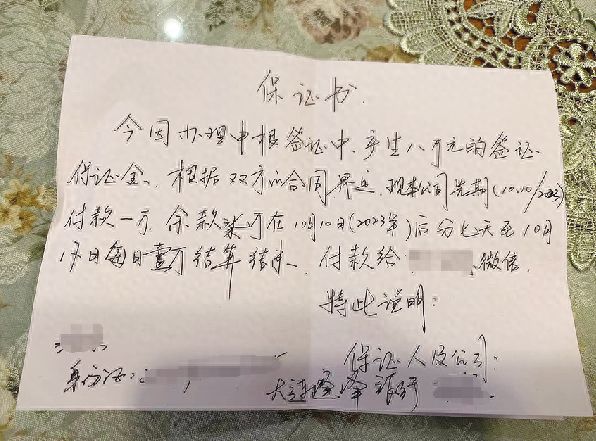 保证书
今因办理申根签证中、产生八万元的签证
保证金、根据双方的合同界定、现本公司先期(10.10/2023)
付款一万 余款柒万在10月10日(2023年)后分七天至10月
17日每日壹万结算结束、付款给 微信、
特此说明:
保证人及公司:
身份证:
大连